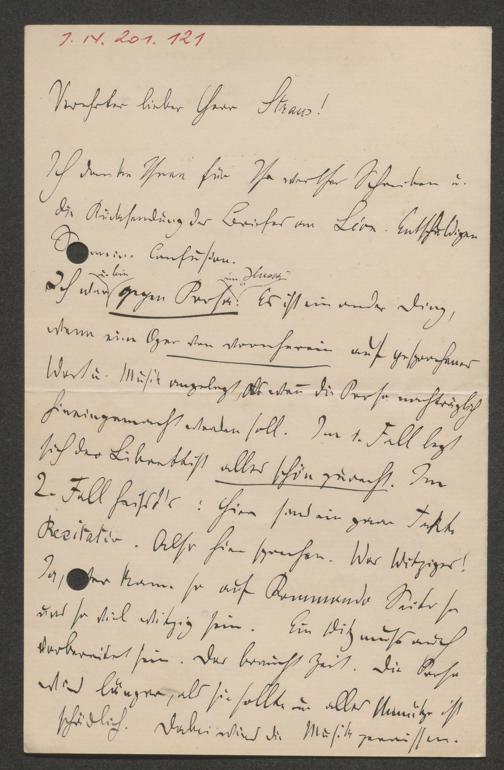 1. IV. 201. 121
Verehrter lieber Herr Straus!
Ich danke Ihnen für Ihr werthes Schreiben u.
die Rücksendung des Briefes an Léon. Entschuldigen
Sie meine Confusion.
u. bin im Prinzip
Ich war gegen Prosa. Es ist ein ander Ding,
wenn eine Oper von vornherein auf gesprochenes
Wort u. Musik angelegt, als wenn die Prosa nachträglich
hineingemacht werden soll. Im 1. Fall legt
sich der Librettist alles schön zurecht. Im
2. Fall heißt's: hier sind ein paar Takte
Rezitativ. Also hier sprechen. Was Witziges!
Ja, wer kann so auf Kommando Seite so
und so viel witzig sein. Ein Witz muß auch
vorbereitet sein. Das braucht Zeit. Die Prosa
wird länger, als sie sollte u. alles Unnütze ist
schädlich. Dabei wird die Musik zerrissen.